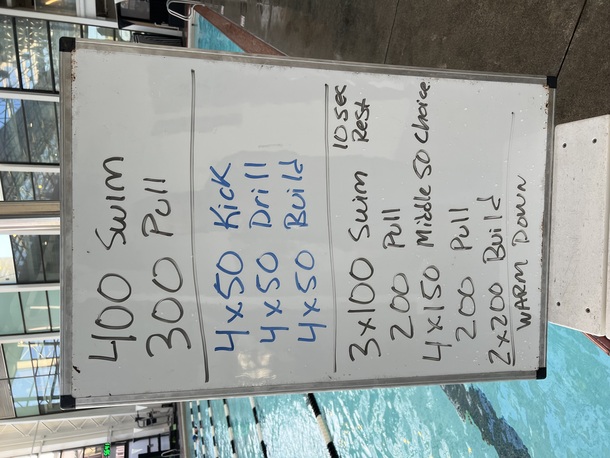 400 Swim
300 Pull
4x50 Kick
4x50 Drill
4x50 Build
3x100 Swim 10 sec Rest
200 Pull
4x150 Middle 50 Choice
200 Pull
2x200 Build
WARM DOWN